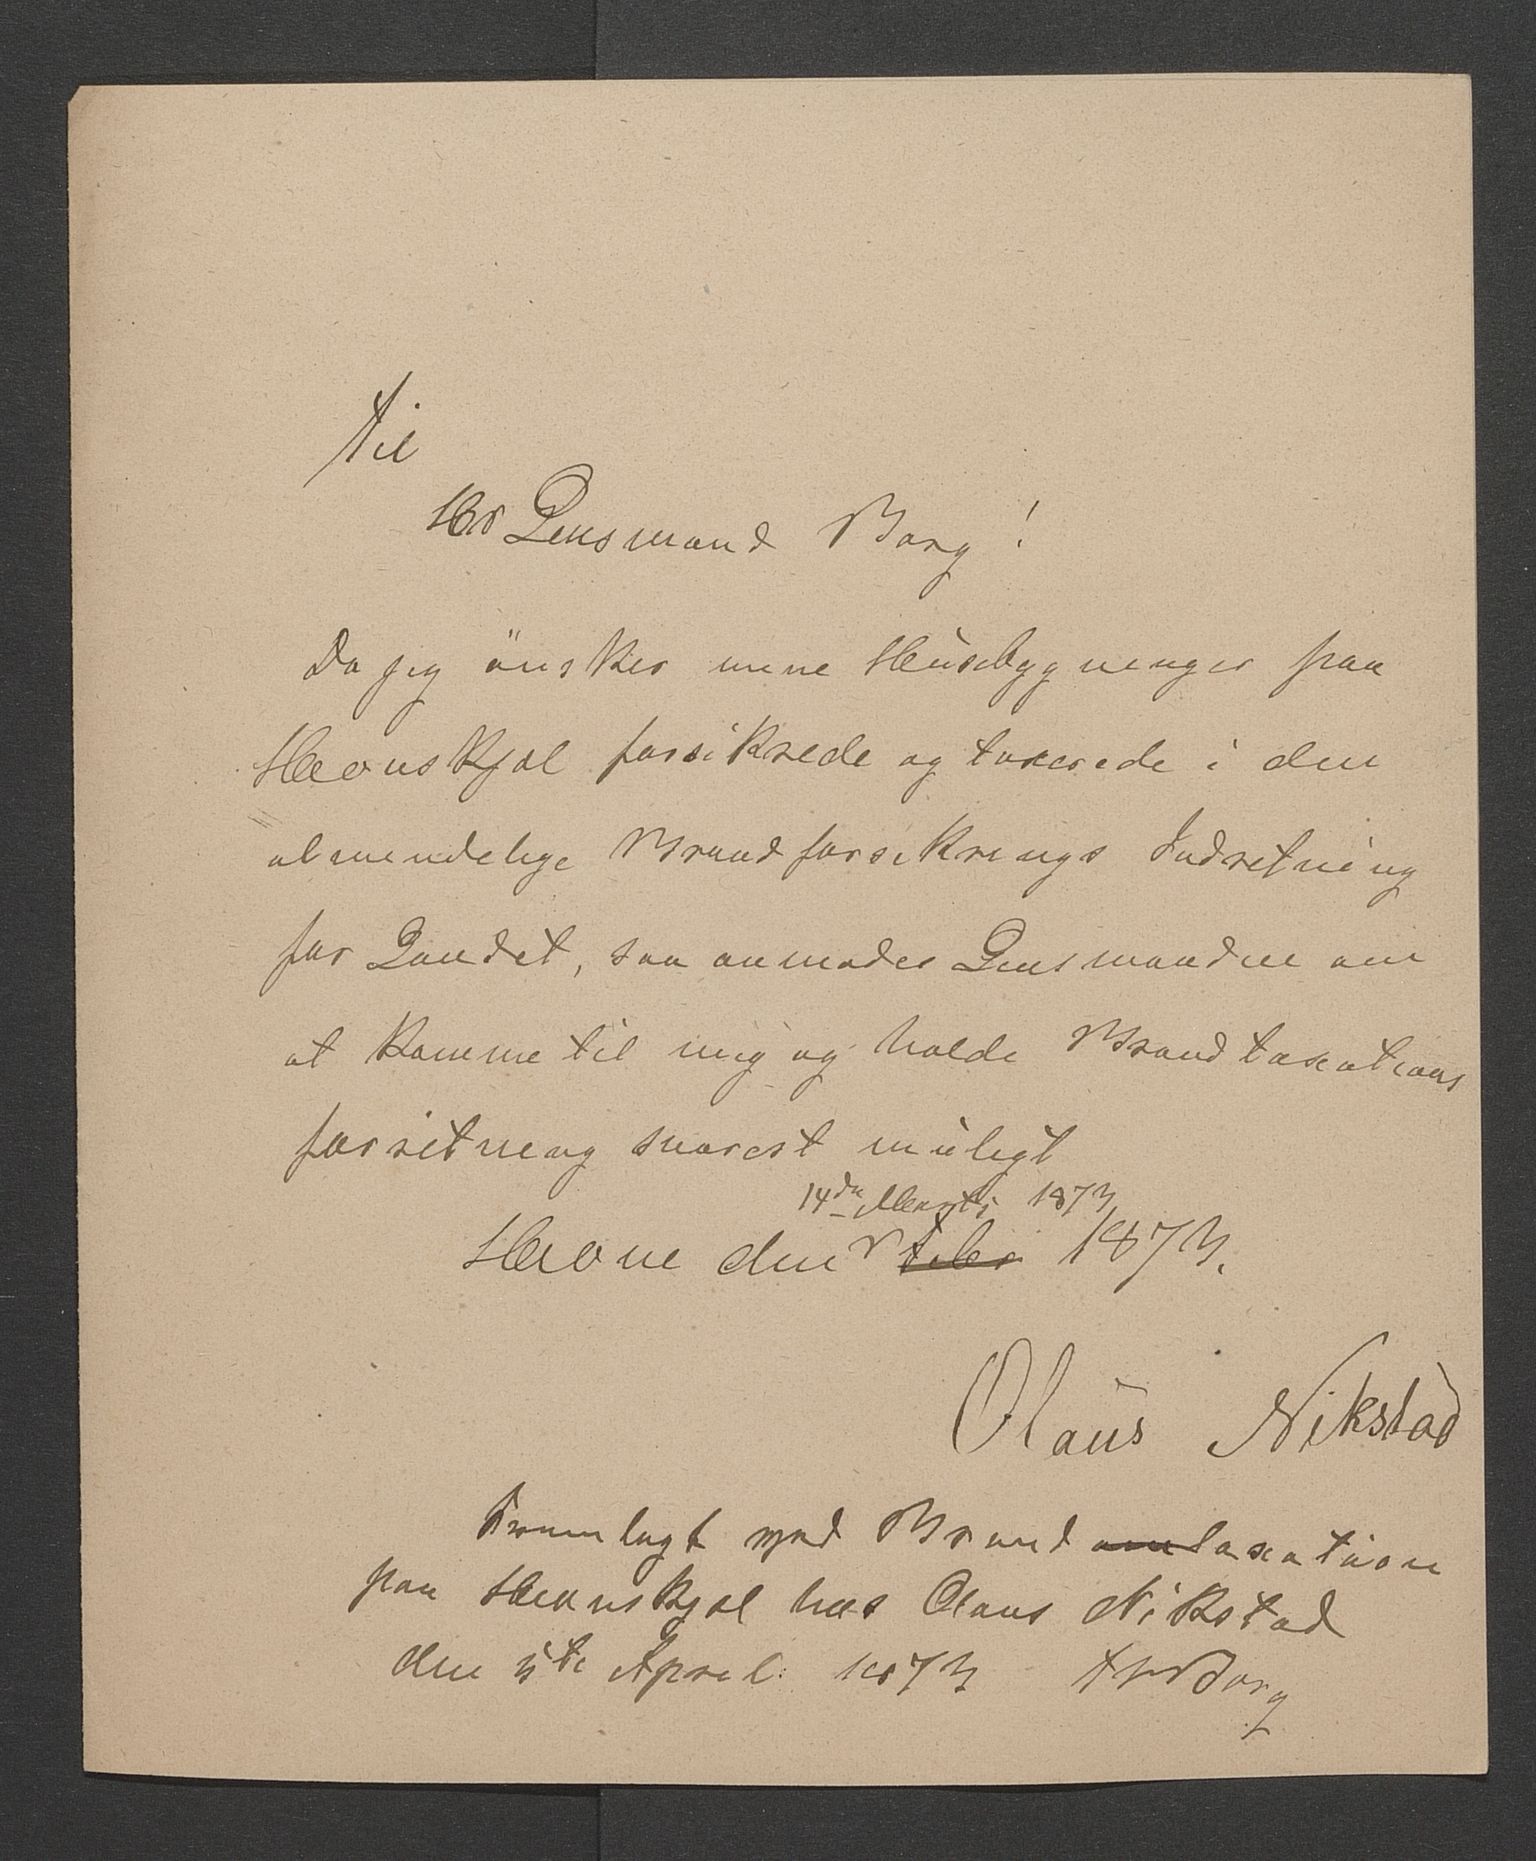 Til
Hr Lensmand Borg!
Da jeg önsker mine Huusbygninger paa
Hevnskjel forsikrede og taxerede i den
almindelige Brandforsikrings Indretning
for Landet, saa anmodes Lensmanden om
at komme til mig og holde Brandtaxations
forretning snarest muligt
14de Marti 1873
Hevne den febr 1873.
Olaus Nikstad
Fremlagt ved Brand om taxation
paa Hevnskjel hos Olaus Nikstad
den 5te April 1873 Borg